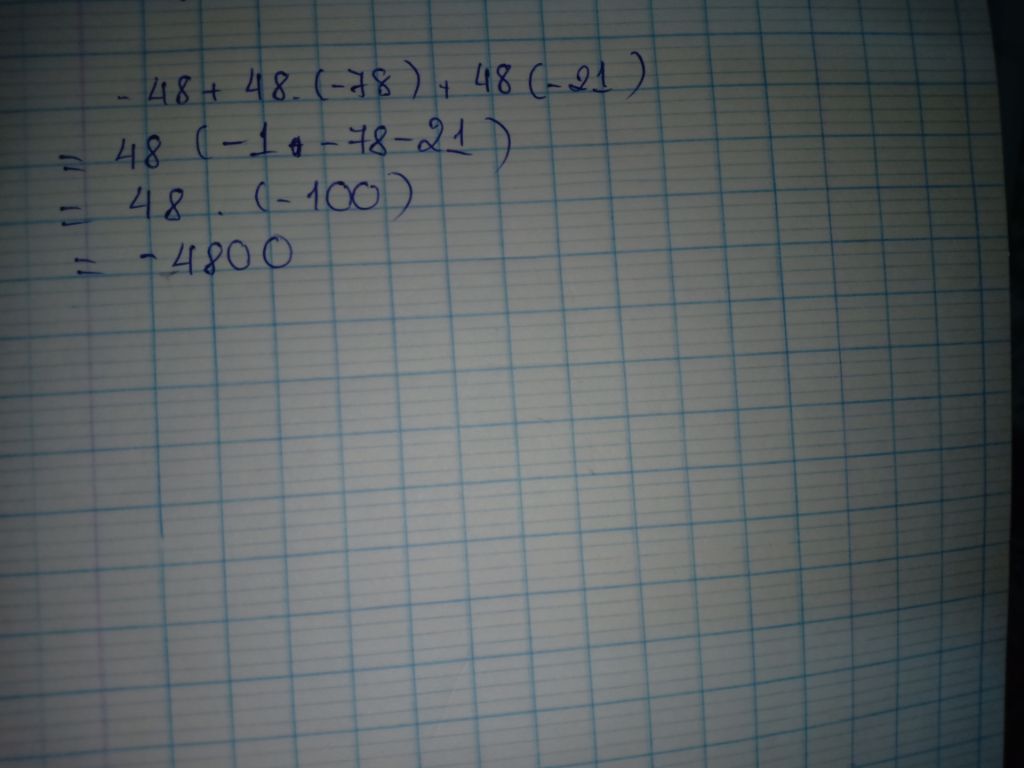 - 48 + 48. (-78) + 48 (-21)
= 48 (-1 - 78 - 21)
= 48 . (-100)
= - 4800